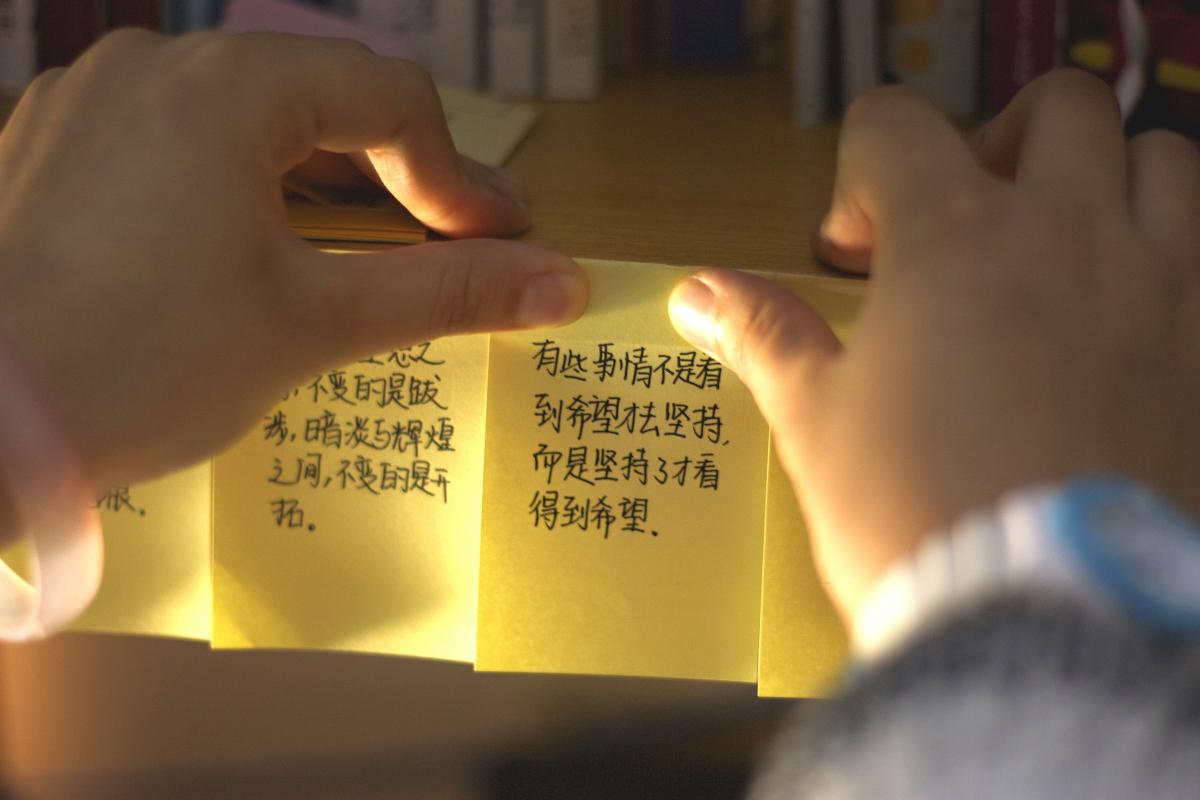 痕.
不变的是跋
涉,暗淡与辉煌
之间,不变的是开
拓。
有些事情不是看
到希望才去坚持,
而是坚持了才看
得到希望.